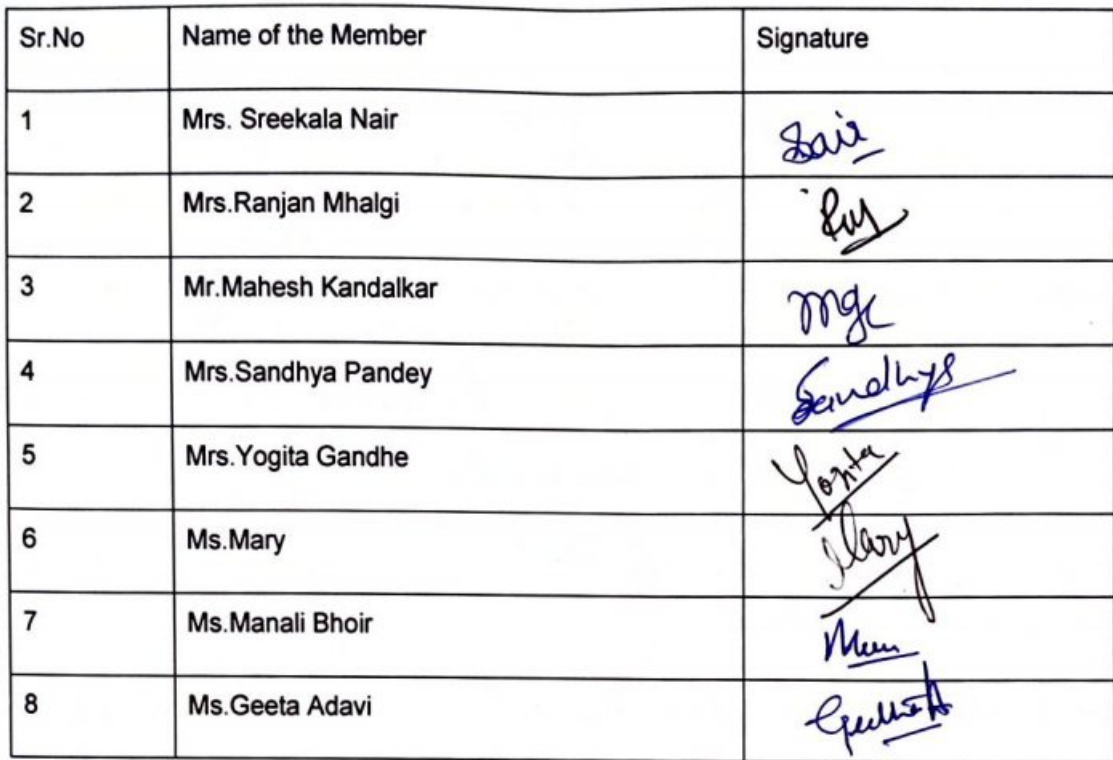 Sr.No Name of the Member Signature
1 Mrs. Sreekala Nair
2 Mrs.Ranjan Mhalgi
3 Mr.Mahesh Kandalkar
4 Mrs.Sandhya Pandey
5 Mrs.Yogita Gandhe Yogita
6 Ms.Mary Mary
7 Ms.Manali Bhoir
8 Ms.Geeta Adavi